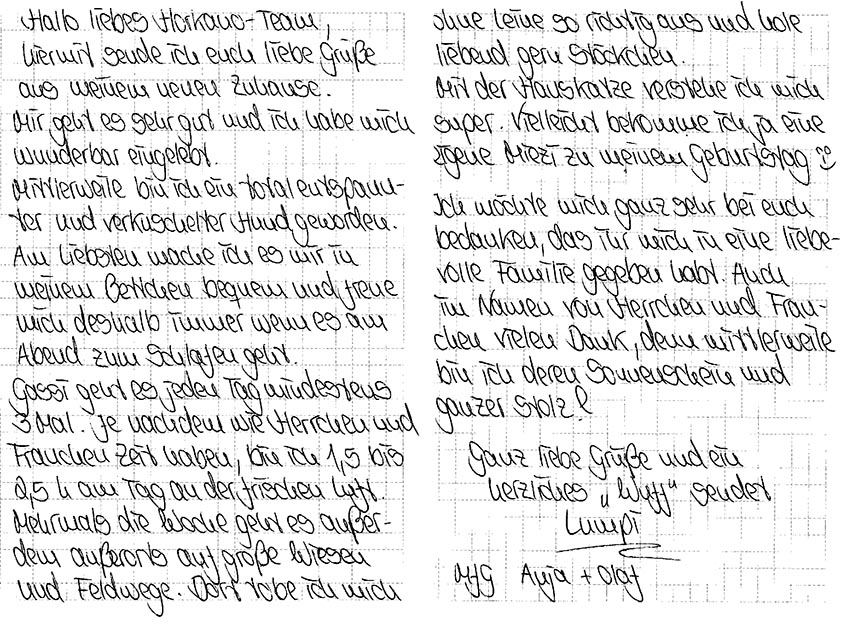 Hallo liebes Horkano-Team,
hiermit sende ich euch liebe Grüße
aus meinem neuen Zuhause.
Mir geht es sehr gut und ich habe mich
wunderbar eingelebt.
Mittlerweile bin ich ein total entspann-
ter und verkuschelter Hund geworden.
Am liebsten mache ich es mir in
meinem Bettchen bequem und freue
mich deshalb immer wenn es am
Abend zum Schlafen geht.
Gassi geht es jeden Tag mindestens
3 Mal. Je nachdem wie Herrchen und
Frauchen Zeit haben, bin ich 1,5 bis
2,5 h am Tag an der frischen Luft.
Mehrmals die Woche geht es außer-
dem außerorts auf große Wiesen
und Feldwege. Dort tobe ich mich
ohne Leine so richtig aus und hole
liebend gern Stöckchen.
Mit der Hauskatze verstehe ich mich
super. Vielleicht bekomme ich ja eine
eigene Miezi zu meinem Geburtstag
Ich möchte mich ganz sehr bei euch
bedanken, das ihr mich in eine liebe-
volle Familie gegeben habt. Auch
im Namen von Herrchen und Frau-
chen vielen Dank, denn mittlerweile
bin ich deren Sonnenschein und
ganzer Stolz!
Ganz liebe Grüße und ein
herzliches „Wuff" sendet
Lumpi
MfG Anja + Olaf